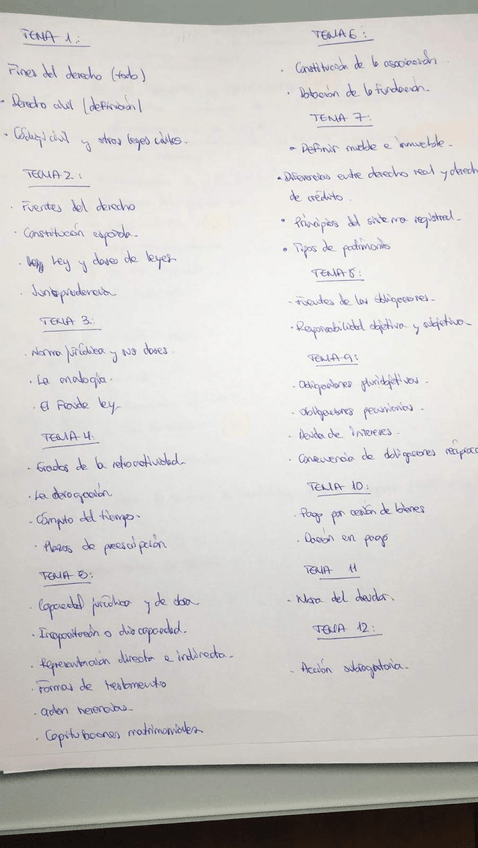 TEMA 1:
Fines del derecho (todo)
· Derecho civil (definición)
· Código civil y otras leyes civiles.
TEMA 2:
· Fuentes del derecho
· Constitución española.
· Ley y clases de leyes
· Jurisprudencia
TEMA 3:
· Norma jurídica y sus clases.
· La analogía.
· El Fraude ley.
TEMA 4:
· Grados de la retroactividad.
· La derogación.
· Cómputo del tiempo.
· Plazos de prescripción
TEMA 5:
· Capacidad jurídica y de obrar
· Incapacitación o discapacidad.
· Representación directa e indirecta.
· Formas de testamento
· herencias.
· Capitulaciones matrimoniales
TEMA 6:
· Constitución de la asociación.
· Dotación de la Fundación.
TEMA 7:
· Definir mueble e inmueble.
· Diferencias entre derecho real y derecho
de crédito.
· Principios del sistema registral.
· Tipos de patrimonio
TEMA 8:
· Fuentes de las obligaciones.
· Responsabilidad objetiva y subjetiva
TEMA 9:
· Obligaciones
· Obligaciones pecuniarias.
· Deuda de intereses.
· Consecuencia de obligaciones recíproca
TEMA 10:
· Pago por cesión de bienes
· Dación en pago
TEMA 11
· Mora del deudor.
TEMA 12:
· Acción subrogatoria.